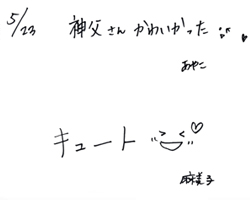 5/23 神父さんかわいかった
あやこ
キュート
麻美子